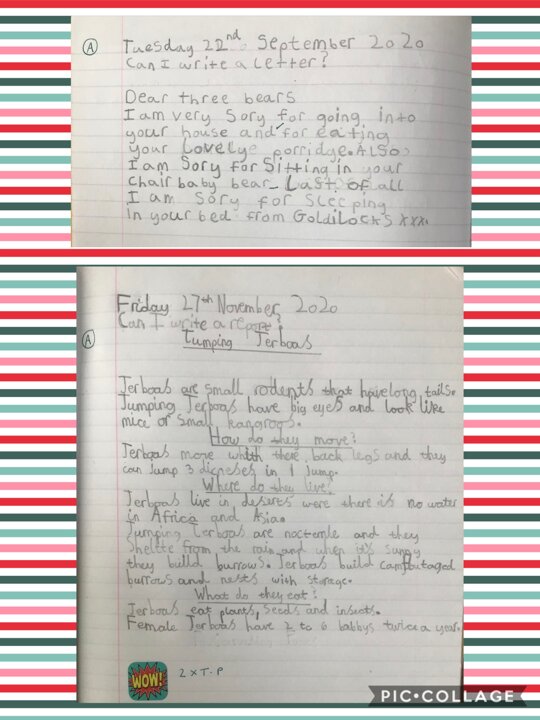 A
Tuesday 22nd September 2020
Can I write a letter?
Dear three bears
I am very Sory for going into
your house and for eating
your Lovelye porridge. Also
I am Sory for Sitting in your
chair baby bear. Last of all
I am Sory for Sleeping
in your bed from Goldilocks xxx
Friday 27th November 2020
Can I write a report?
A
Jumping Jerboas
Jerboas are small rodents that have long tails.
Jumping Jerboas have big eyes and look like
mice or small kangaroos.
How do they move?
Jerboas move whith there back legs and they
can Jump 3 in 1 Jump.
Where do they live?
Jerboas live in deserts were there is no water
in Africa and Asia.
Jumping Jerboas are and they
from the rain and when it's sunny
they build burrows. Jerboas build
burrows and nests with storage.
What do they eat?
Jerboas eat plants, Seeds and insects.
Female Jerboas have 2 to 6 babbys twice a year.
WOW!
2 x T.P
PIC•COLLAGE